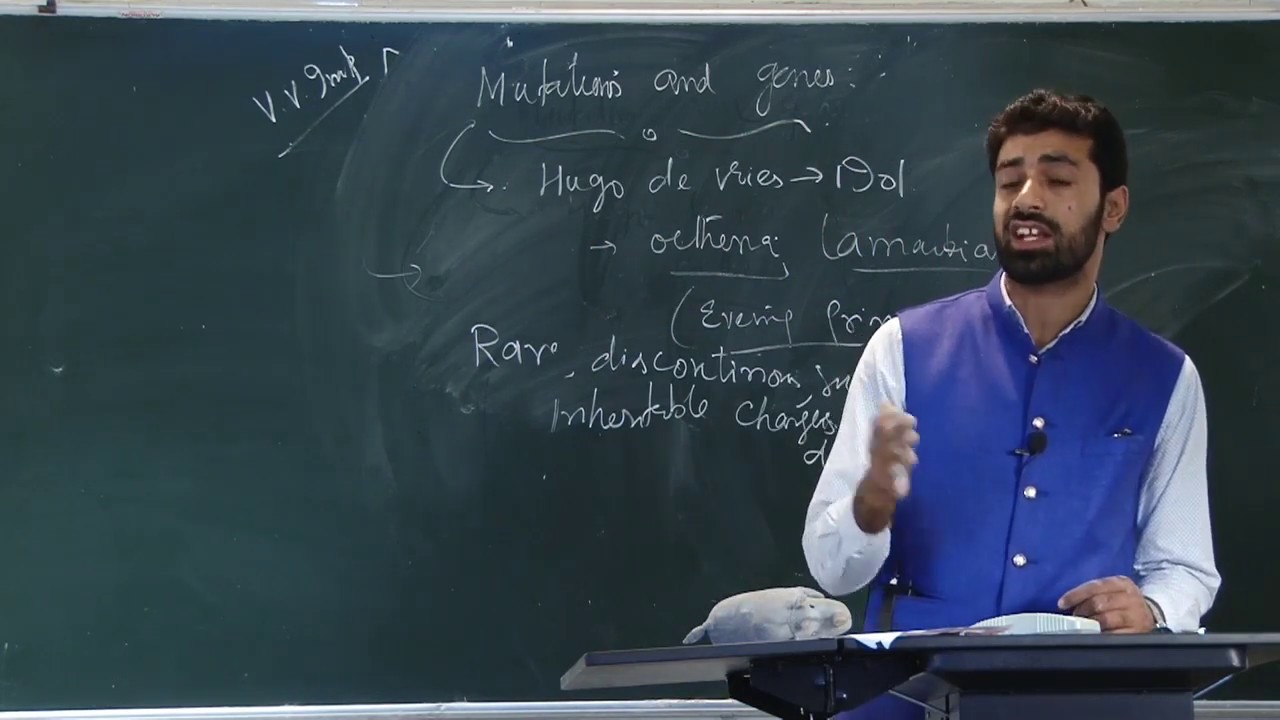 V.V. Imp
Mutations and genes:
Hugo de vries → 1901
→ octhena lamarkia
(Evening Prim
Rare, discontinous, su
inheritable changes
d